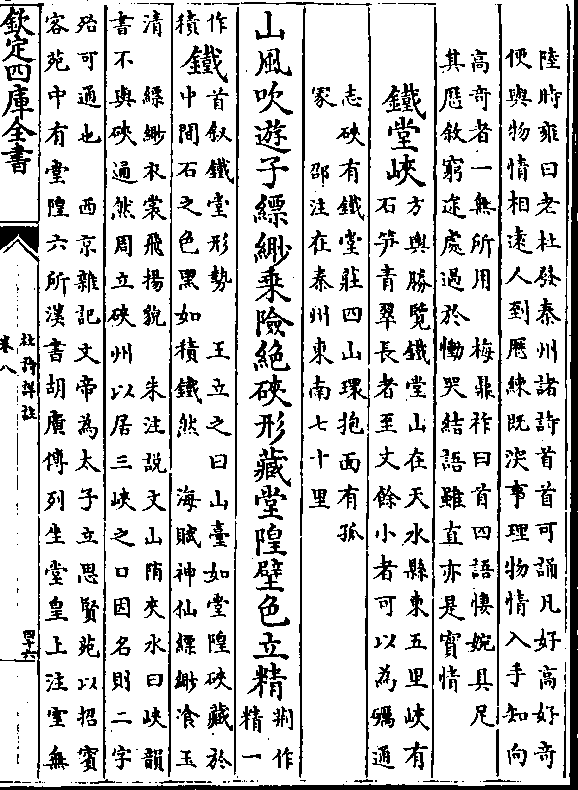 陸時雍曰老杜發秦州諸詩首首可誦凡好高好奇
便與物情相遠人到歷練既深事理物情入手知向
高奇者一無所用　梅鼎祚曰首四語悽婉具足
其歷敘窮途處過於慟哭結語雖直亦是實情
鐵堂峽
方輿勝覽鐵堂山在天水縣東五里峽有
石笋青翠長者至丈餘小者可以為礪通
志硤有鐵堂莊四山環抱面有孤
冢　邵注在秦州東南七十里
山風吹遊子縹緲乗險絶硤形藏堂隍壁色立精
荆作
精一
作
積
鐵
首叙鐵堂形勢　王立之曰山臺如堂隍硤藏於
中間石之色黑如積鐵然　海賦神仙縹緲飡玉
清　縹緲衣裳飛揚貌　朱注説文山陗夾水曰峽韻
書不與硤通然周立硤州以居三峽之口因名則二字
殆可通也　西京雜記文帝為太子立思賢苑以招賓
客苑中有堂隍六所漢書胡廣傳列坐堂皇上注室無
欽定四庫全書
杜詩詳註
卷八
四十六